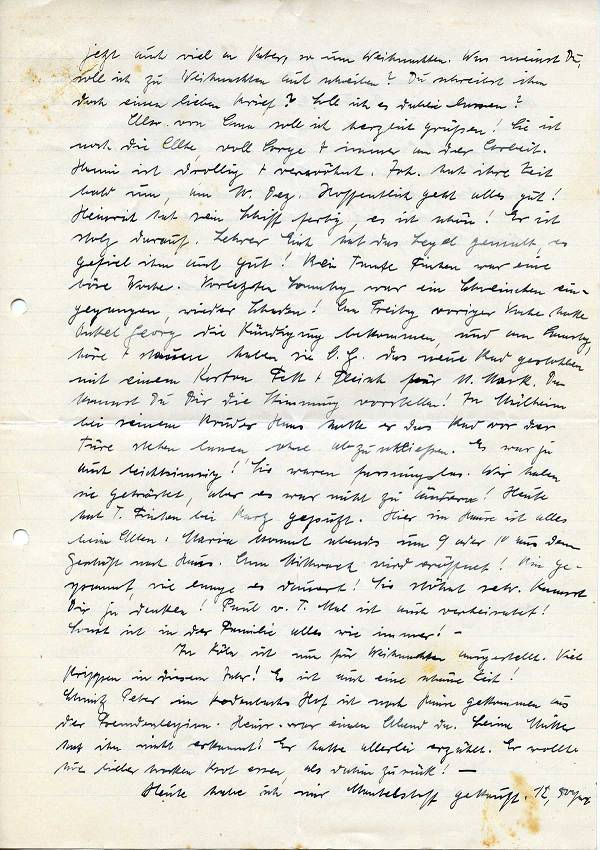 jetzt auch viel an Vater, so um Weihnachten. Was meinst Du,
soll ich zu Weihnachten auch schreiben? Du schreibst ihm
doch einen lieben Brief? Soll ich es dabei lassen?
von soll ich herzlich grüßen! Sie ist
noch die Alte, voll Sorge + immer an der Arbeit.
ist drollig + verwöhnt. hat ihre Zeit
bald um, am Dez. Hoffentlich geht alles gut!
Heinrich hat sein Schiff fertig, es ist schön! Er ist
stolz darauf. Lehrer hat das Segel genäht, es
gefiel ihm auch gut! Bei Tante war eine
böse Woche. Vorletzten Sonntag war ein Schweinchen ein-
gegangen, wieder Schaden! Am Freitag voriger Woche hatte
Onkel Georg die Kündigung bekommen, und am Samstag,
höre + staune haben sie O. G. das neue Rad gestohlen
mit einem Karton Fett + Fleisch für Mark. Da
kannst Du Dir die Stimmung vorstellen! In Mülheim
bei seinem Bruder Hans hatte er das Rad vor der
Türe stehen lassen, ohne abzuschließen. Es war ja
auch leichtsinnig! Sie waren fassungslos. Wir haben
sie getröstet, aber es war nicht zu ändern! Heute
hat T. bei geputzt. Hier im Hause ist alles
beim Alten. Maria kommt abends um 9 oder 10 aus dem
Geschäft nach Haus. Am Mittwoch wird eröffnet! Bin ge-
spannt, wie lange es dauert! Sie stöhnt sehr. Kannst
Dir ja denken! Paul v. T. ist auch verheiratet!
Sonst ist in der Familie alles wie immer! –
In Köln ist nun für Weihnachten ausgestellt. Viele
Krippen in diesem Jahr! Es ist auch eine schöne Zeit!
Schmitz Peter im Hof ist nach Hause gekommen aus
der Fremdenlegion. Heinr. war einen Abend da. Seine Mutter
hat ihn nicht erkannt! Er hatte allerlei erzählt. Er wollte
hier lieber trocken Brot essen, als dahin zurück! –
Heute habe ich mir Mantelstoff gekauft.